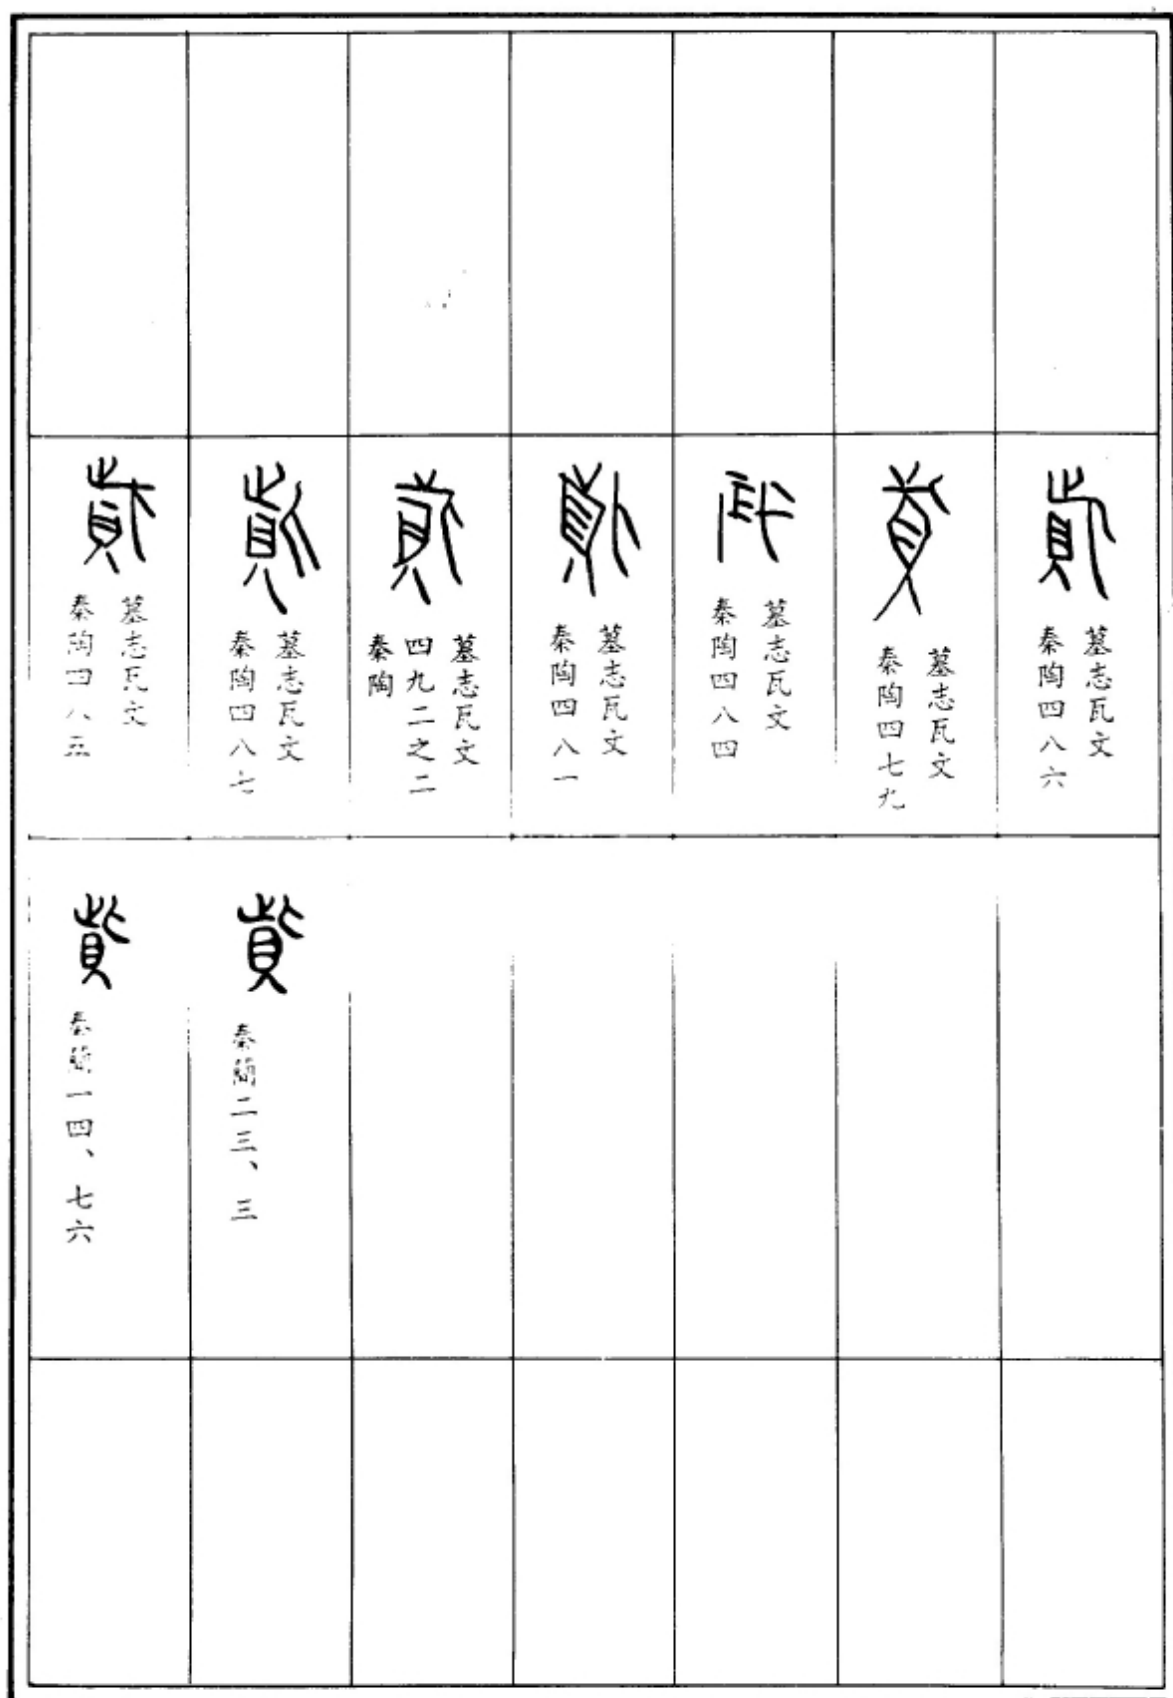 墓志瓦文
秦陶四八六
墓志瓦文
秦陶四七九
墓志瓦文
秦陶四八四
墓志瓦文
秦陶四八一
墓志瓦文
四九二之二
秦陶
墓志瓦文
秦陶四八七
墓志瓦文
秦陶四八五
秦簡二三、三
秦簡一四、七六